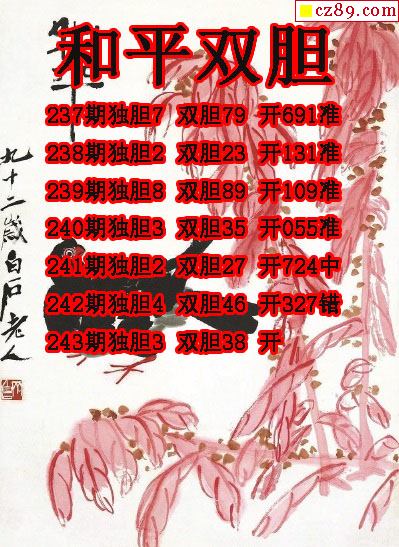 cz89.com
和平双胆
237期独胆7 双胆79 开691准
238期独胆2 双胆23 开131准
239期独胆8 双胆89 开109准
240期独胆3 双胆35 开055准
241期独胆2 双胆27 开724中
242期独胆4 双胆46 开327错
243期独胆3 双胆38 开
九十二岁白石老人